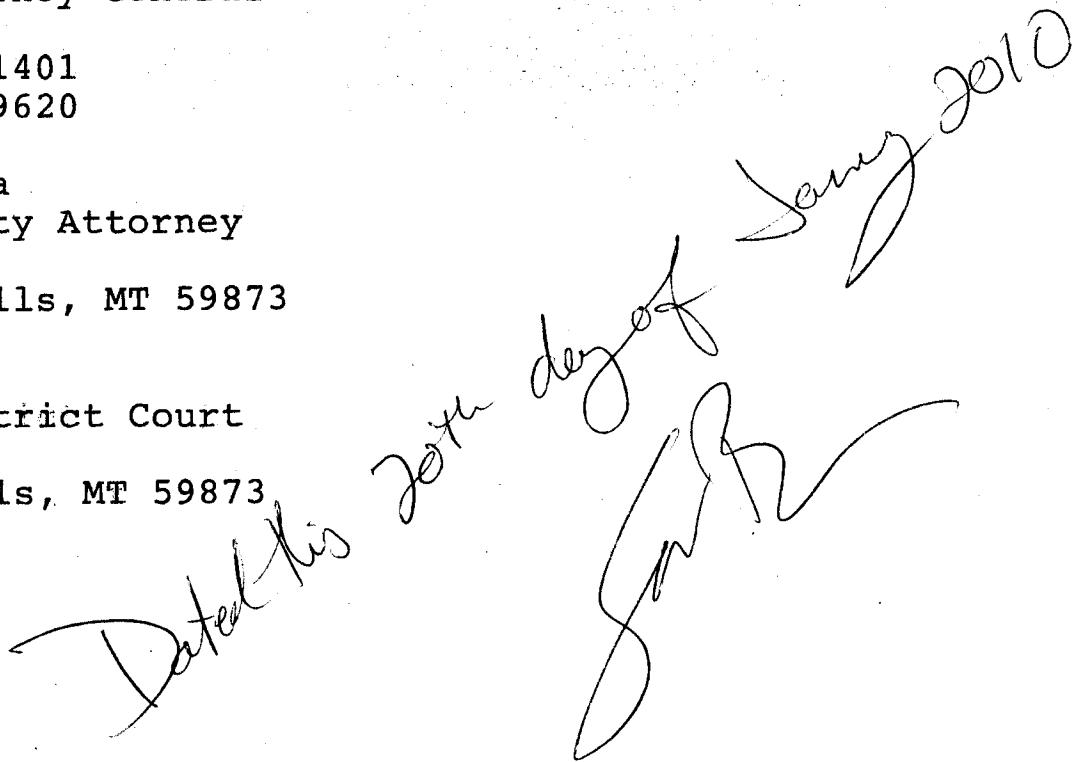 1401
9620
a
ty Attorney
lls, MT 59873
trict Court
ls, MT 59873
Dated this 20th day of January 2010